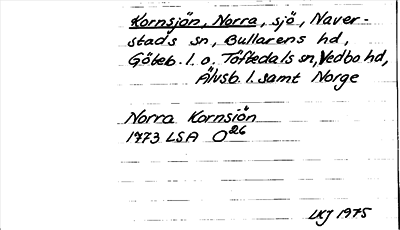 Kornsjön, Norra, sjö, Naver-
stads sn, Bullarens hd,
Göteb. l. o. Töftedals sn, Vedbo hd,
Älvsb. l. samt Norge
Norra Kornsiön
1773 LSA O26
LKJ 1975